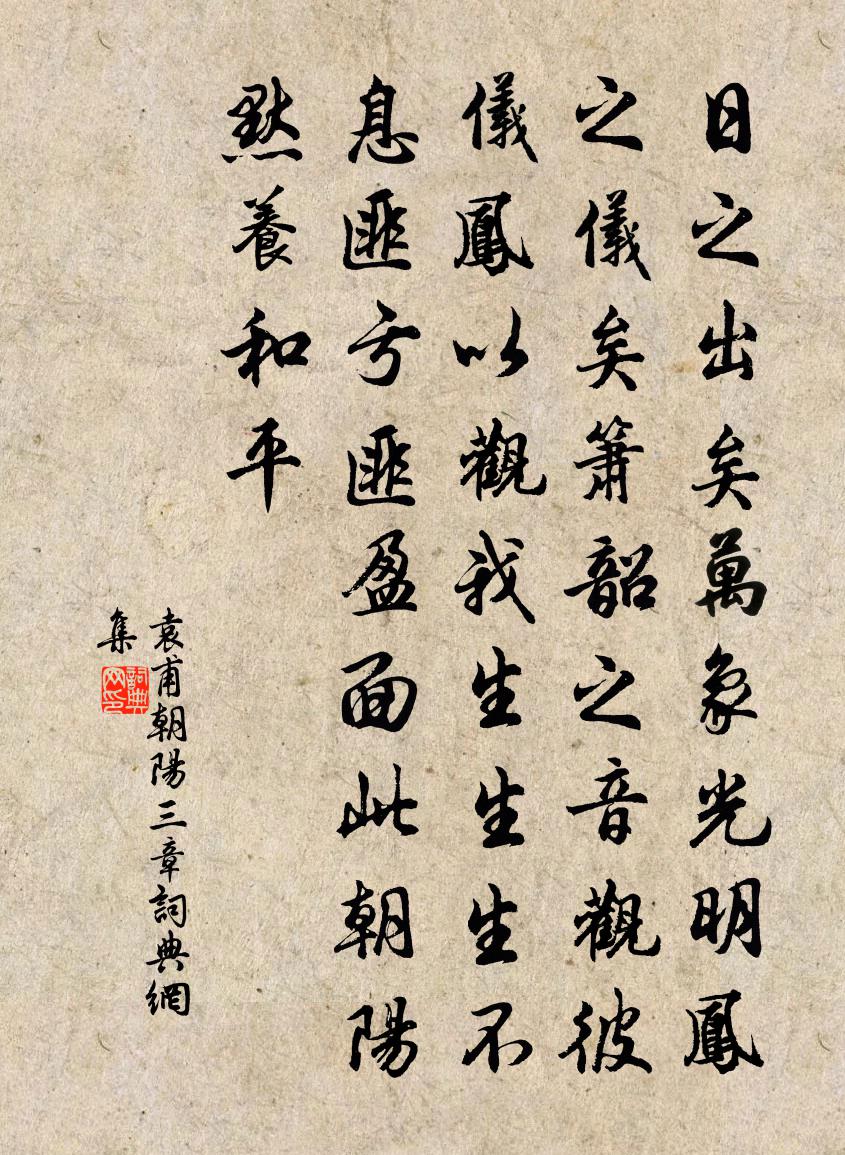 日之出矣萬象光明鳳
之儀矣簫韶之音觀彼
儀鳳以觀我生生生不
息匪亏匪盈面此朝陽
默養和平
袁甫朝陽三章詞典網
集
詞典
网印